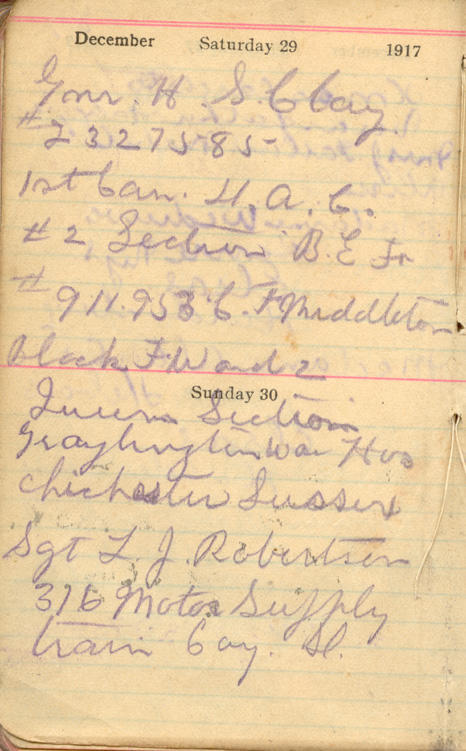 December Saturday 29 1917
Gnr. H. S. Clay
# 2327585
1st Can. H. A. C.
# 2 Section B. E. F.
# 911.953 C. F Middleton
Block F Ward 2
Sunday 30
Section
Graylingten War Hos
Chichester Sussex
Sgt L. J. Robertson
316 Motor Supply
train Coy.